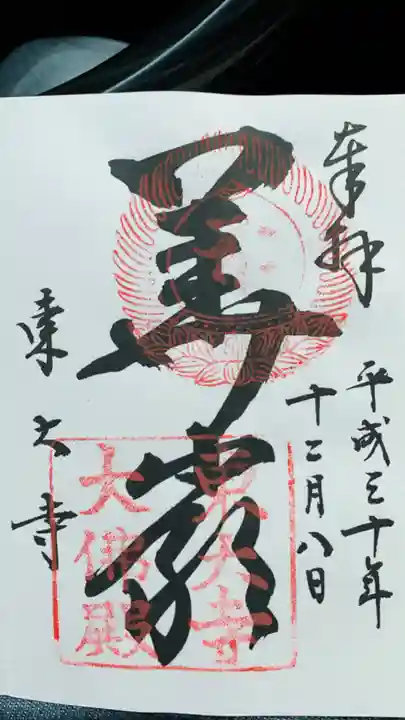 奉拝
平成三十年
十二月八日
華厳
東大寺
東大寺
大佛殿